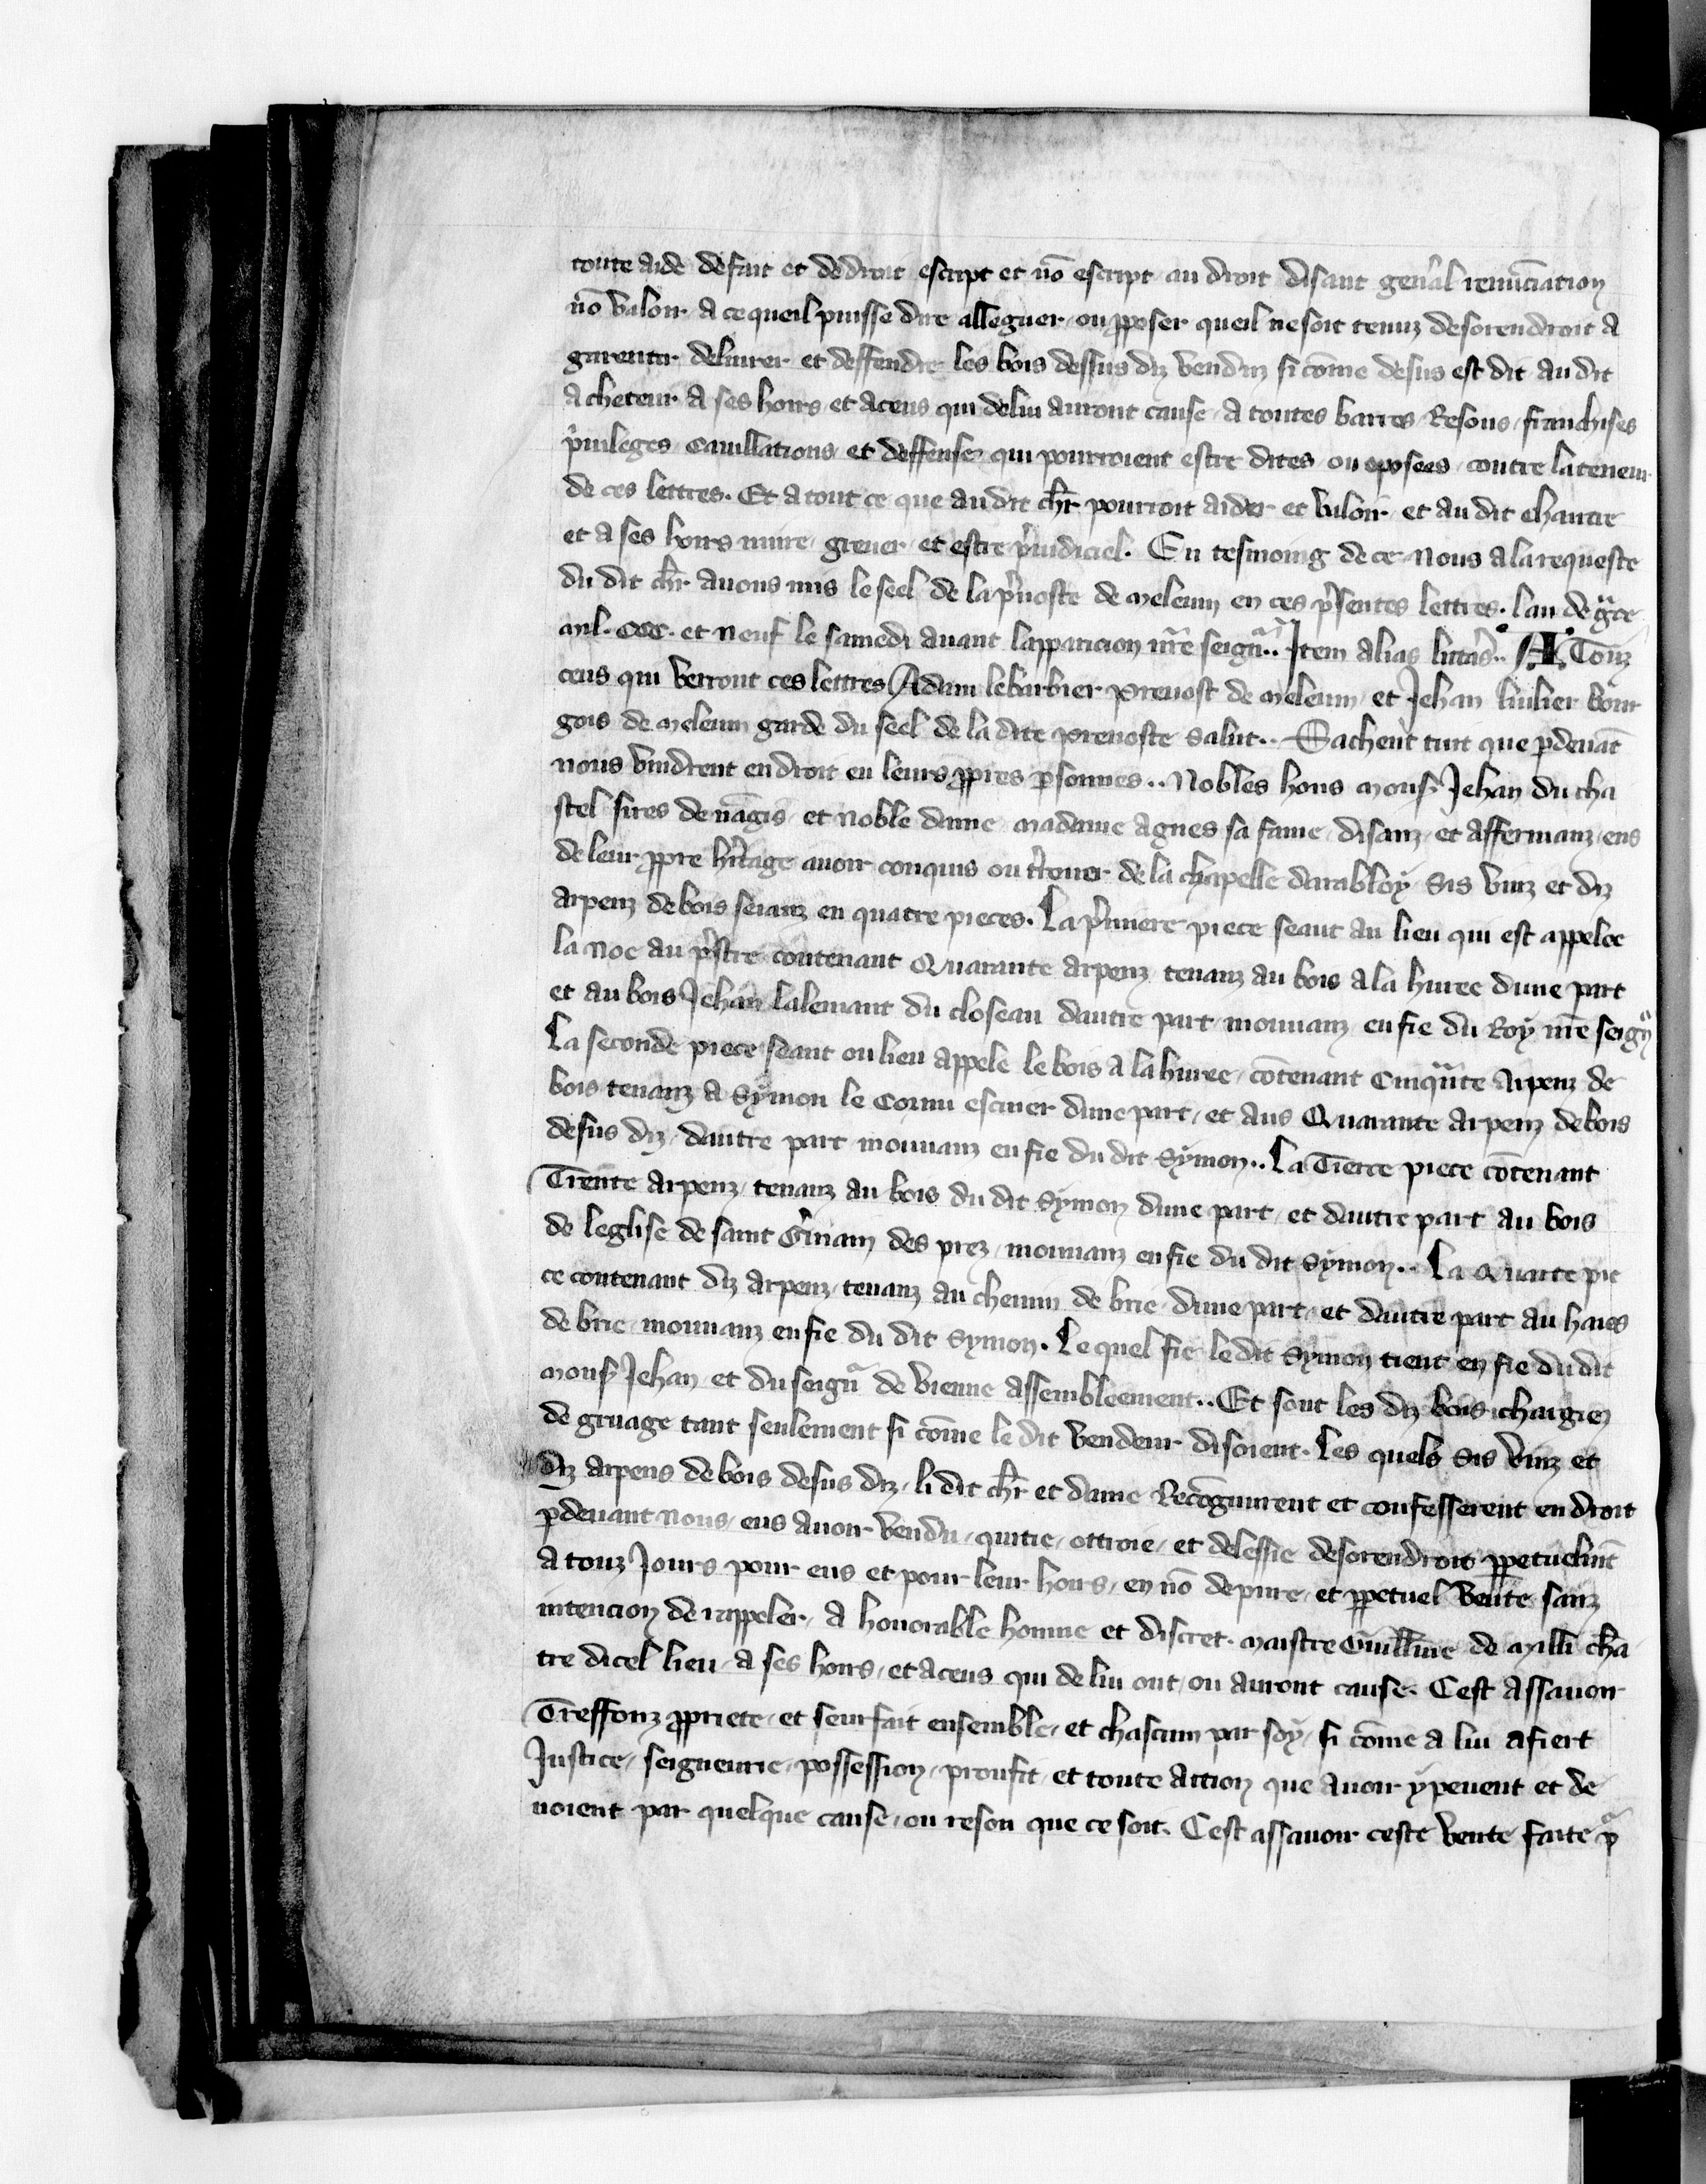 toute aide de fait et de droit escript et nō escript au droit disant gen̄al renūciation
nō valoir a ce queil puisse dire alleguer ou ꝓposer queil ne soit tenuz desorendroit a
garentir deliurer et deffendre les bois dessus diz venduz si cōme desus est dit au dit
acheteur a ses hoirs et a ceus qui de lui auront cause a toutes barres Resons franchises
p̍uileges cauillations et deffenses qui pourroient estre dites ou oposees contre la teneur
de ces lettres. Et a tout ce que au dit ch̄r pourroit aider et valoir et au dit chantre
et a ses hoirs nuire greuer et estre p̍iudiciel. En tesmoing de ce nous a la requeste
du dit ch̄r auons mis le seel de la p̍uoste de meleun en ces p̍sentes lettres. lan de gᵃce
mil. ccc. et neuf le samedi auant lapparicion nr̄e seigᵃ.. Item alias litt̄as.. A Touz
ceus qui verront ces lettres Adam lebarbier Preuost de meleun et Jehan luilier bour
gois de meleun garde du seel de la dite Preuoste Salut.. Sachent tuit que ꝑdeuāt
nous vindrent en droit en leurs ꝓpres ꝑsonnes.. Nobles hons mons̄ Jehan du cha
stel sires de nāgis et noble dame madame agnes sa fame disanz et affermanz eus
de leur ꝓpre h̍itage auoir conquis ou t̍rouer de la chapelle darabloÿ sis vinz et diz
arpenz de bois seianz en quatre pieces. La p̍miere piece seant au lieu qui est appelee
la noe au p̍stre contenant Quarante arpenz tenanz au bois a la huree dune part
et au bois Jehan lalemant du closeau dautre part mouuanz en fie du Roÿ nr̄e seigᵃ
La seconde piece seant ou lieu appele le bois a la huree cōtenant Cinquāte arpenz de
bois tenanz a Sÿmon le Cornu escuier dune part et aus Quarante arpenz de bois
desus diz dautre part mouuanz en fie du dit Sÿmon.. La Tierce piece cōtenant
Trente arpenz tenanz au bois du dit Sÿmon dune part et dautre part au bois
de leglise de saint G̍main des prez mouuanz en fie du dit Sÿmon.. La Quarte pie
ce contenant diz arpenz tenanz au chemin de brie dune part et dautre part au haies
de brie mouuanz en fie du dit Sÿmon. Le quel fie le dit Sÿmon tient en fie du dit
mons̄ Jehan et du seigᵃ de vienne assembleement.. Et sont les diz bois chargiez
de gruage tant seulement si cōme le dit vendeur disoient. Les quels sis vinz et
diz arpens de bois desus diz li dit ch̄r et dame Recōgnurent et confesserent en droit
ꝑdeuant nous eus auoir vendu quitie ottroie et delessie desorendroit ꝑpetuelmt̄
a touz Jours pour eus et pour leur hoirs en nō de pure et ꝑpetuel vente sanz
intencion de rappeler a honorable homme et discret. maistre Guill̄me de milli chā
tre dicel lieu a ses hoirs et a ceus qui de lui ont ou auront cause. Cest assauoir
Treffonz ꝓpriete et seurfait ensemble et chascun par soÿ si cōme a lui afiert
Justice seigneurie possession proufit et toute action que auoir ÿ peuent et de
uoient par quelque cause ou reson que ce soit. Cest assauoir ceste vente faite pᵃ